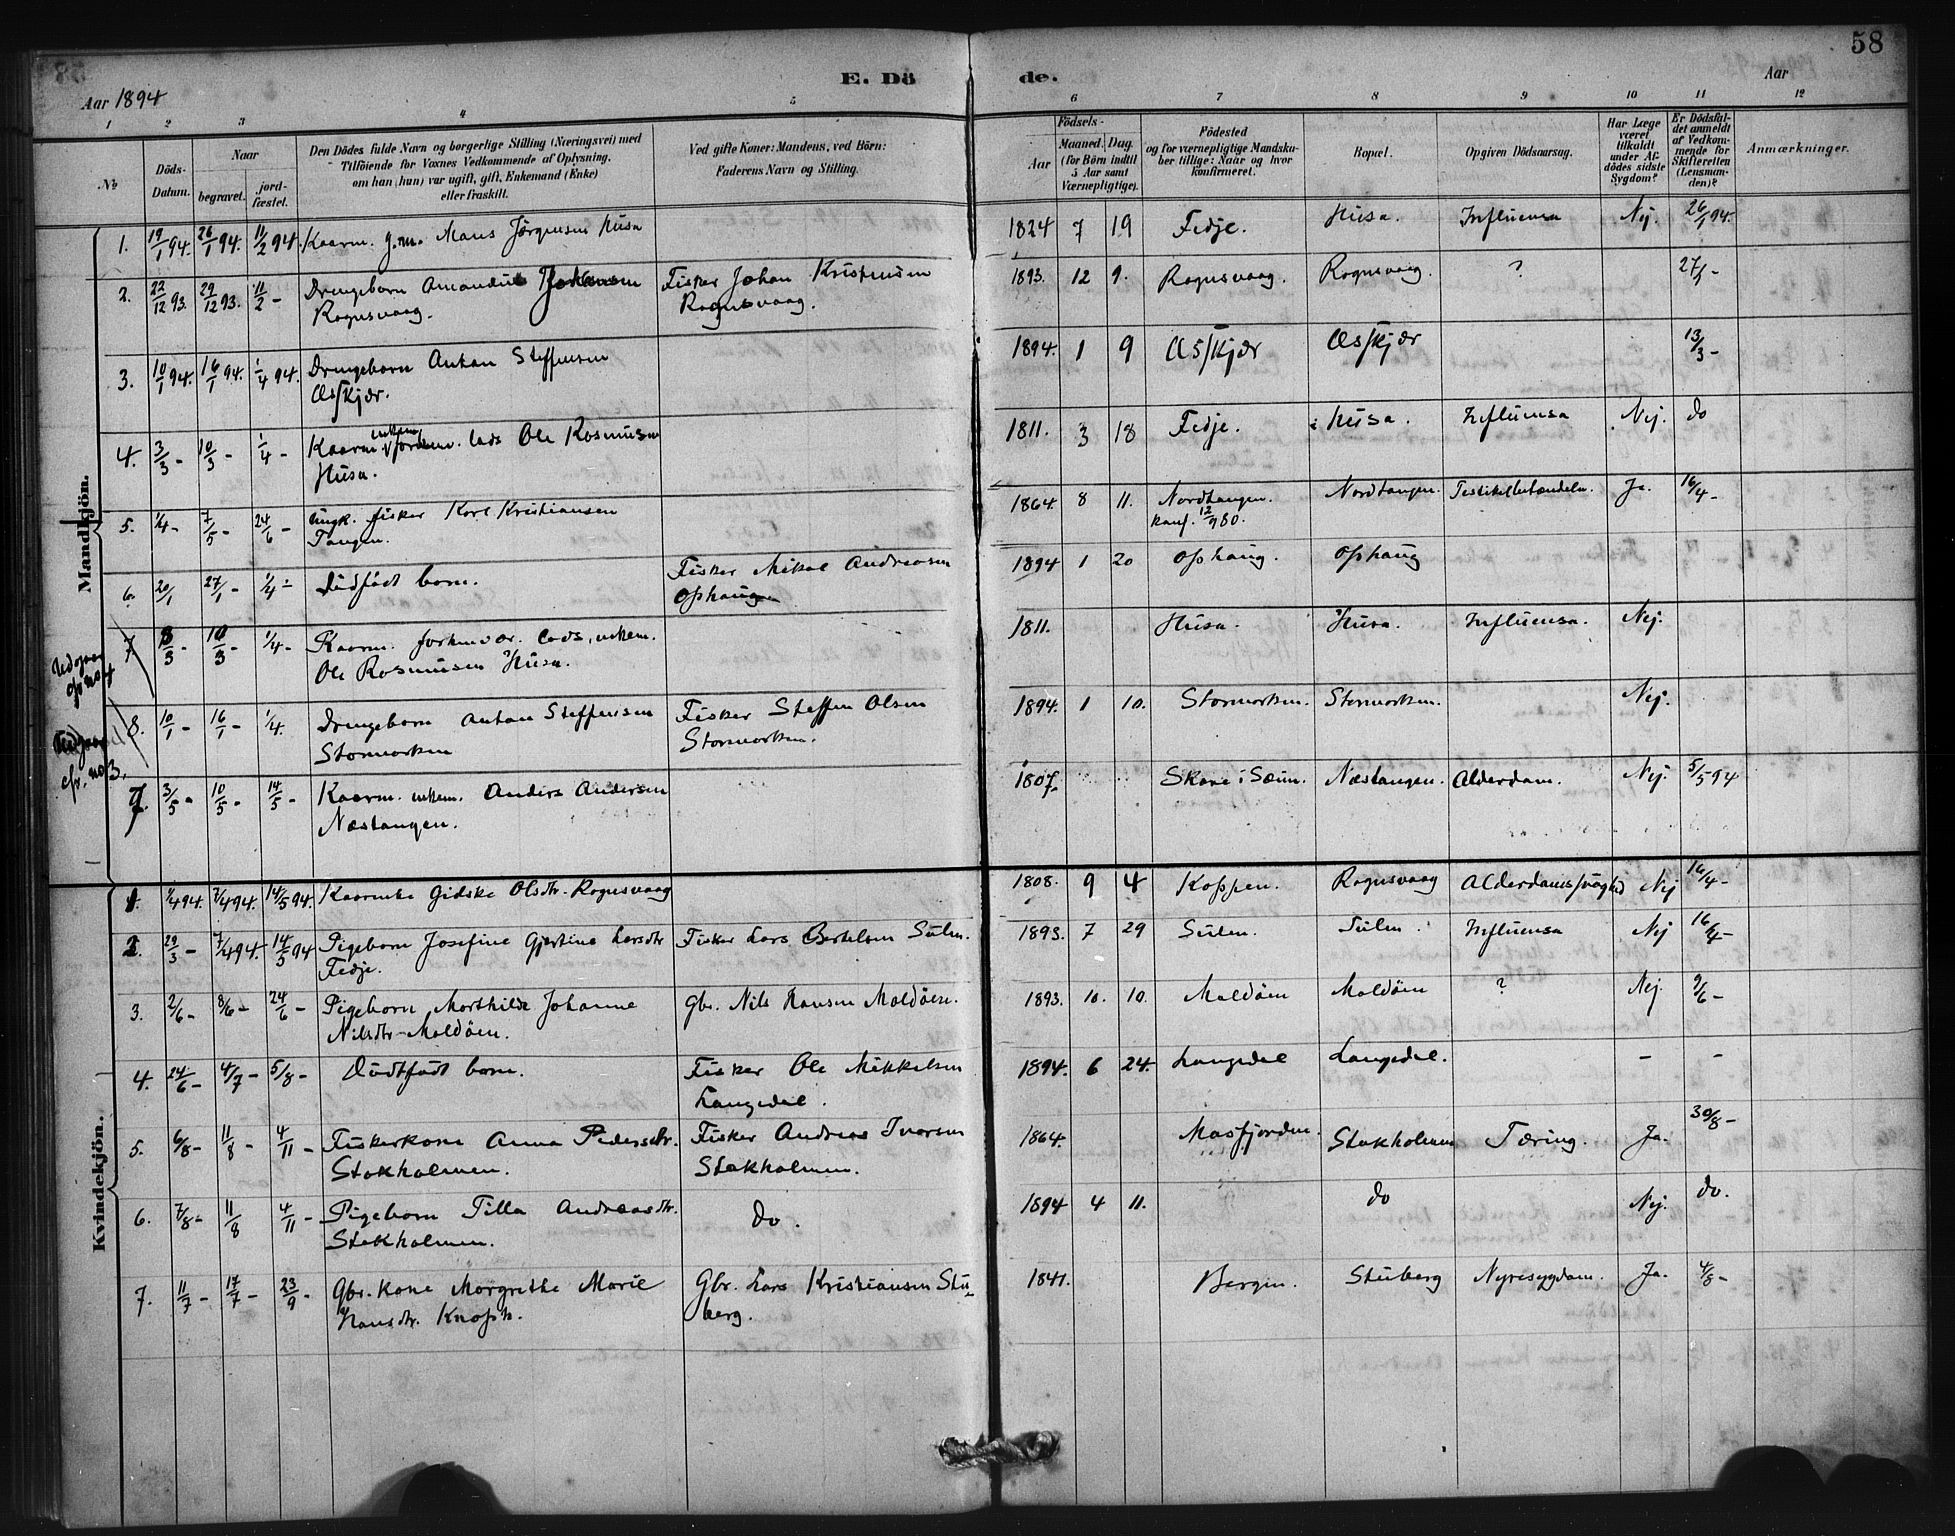 58
E. Dö de.
Aar 1894
Aar
1 2 3 4 5 6 7 8 9 10 11 12
No
Döds-Datum.
Naar
begravet.
jord-fæstet.
Den Dödes fulde Navn og borgerlige Stilling (Næringsvei) med
Tilföiende for Voxnes Vedkommende af Oplysning,
om han (hun) var ugift, gift, Enkemand (Enke)
eller fraskilt.
Ved gifte Koner: Mandens, ved Börn:
Faderens Navn og Stilling.
Födsels-
Aar
Maaned. Dag.
(for Börn indtil
5 Aar samt
Værnepligtige).
Födested
og for værnepligtige Mandsku-
ber tillige: Naar og hvor
konfirmeret.
Bopæl.
Opgiven Dödsaarsag.
Har Læge
været
tilkaldt
under Af-
dödes sidste
Sygdom?
Er Dödsfal-
det anmeldt
af Vedkom-
mende for
Skifteretten
(Lensman-
den)?
Anmærkninger.
Mandkjön.
1. 19/1 94. 26/1 94. 11/2 94. Kaarm. g.m. Mans Jörgensen Husa 1824 7 19 Fedje. Husa. Influensa Nej. 26/1 94.
2. 22/12 93. 29/12 93. 11/2 - Drengebarn Amandus Johansen Fisker Johan Kristensen 1893. 12 9. Rognsvaag. Rognsvaag. ? 27/1 -
Rognsvaag. Rognsvaag.
3. 10/1 94. 16/1 94. 1/4 94. Drengebarn Anton Steffensen 1894. 1 9 Æsskjær Æsskjær 13/3 -
Æsskjær.
4. 3/3 - 10/3 - 1/4 - Kaarm. enkem. forhenv. lods Ole Rasmusen 1811. 3 18 Fedje. Husa. Influensa Nej. do
Husa.
5. 1/4 - 7/5 - 24/6 - Ungk. fisker Karl Kristiansen 1864. 8 11. Nordtangen. Nordtangen. Testikelbetændelse. Ja. 16/4 -
Tangen. konf. 12/9 80.
6. 20/1 27/1 - 1/4 - Dödfödt barn. Fisker Mikal Andreasen 1894 1 20 Ophaug. Ophaug
Ophaug
Udgaar
cfr no 4
7 3/3 - 10/3 - 1/4 - Kaarm. forhenvær. lods, enkem. 1811. Husa. Husa. Influensa. Nej.
Ole Rasmusen Husa.
Udgaar
cfr. no 3.
8. 10/1 - 16/1 - 1/4. Drengebarn Anton Steffensen Fisker Steffen Olsen 1894. 1 10. Stormarken. Stormarken. Nej.
Stormarken Stormarken.
7. 3/5 - 10/5 - 14/5 - Kaarm. enkem. Anders Andersen 1807. Skare i Sæun. Næstangen. Alderdom. Nej. 5/5 94
Næstangen.
Kvindekjön.
1. 1/4 94. 7/4 94. 14/5 94. Kaarenke Gidske Olsdtr. Rognsvaag 1808. 9 4 Koppen. Rognsvaag Alderdomssvaghed Nej 16/4 -
2. 29/3 - 7/4 94. 14/5 94 Pigebarn Josefine Gjertine Larsdtr Fisker Lars Bertelsen Sulen. 1893. 7 29 Sulen. Sulen. Influensa Nej 16/4 -
Fedje.
3. 2/6 - 8/6 - 24/6 - Pigebarn Marthilde Johanne Gbr. Nils Hansen Moldöen. 1893. 10. 10. Moldöen Moldöen ? Nej. 9/6 -
Nilsdtr Moldöen.
4. 24/6 - 4/7 - 5/8 - Dödfödt barn. Fisker Ole Mikkelsen 1894. 6 24. Langedal Langedal. - -
Langedal.
5. 6/8 - 11/8 - 4/11 - Fiskerkone Anna Pedersdtr. Fisker Andreas Ivarsen 1864. Masfjorden. Stokholmen Tæring. Ja. 30/8 -
Stokholmen. Stokholmen.
6. 7/8 - 11/8 4/11 - Pigebarn Tilla Andreasdtr. do. 1894 4 11. do Nej. do.
Stokholmen.
7. 11/7 - 17/7 - 23/9 - Gbr. Kone Margrethe Marie Gbr. Lars Kristiansen Stu- 1841. Bergen. Stuberg Nyresygdom. Ja. 4/8 -
Hansdtr. Knoph. berg.